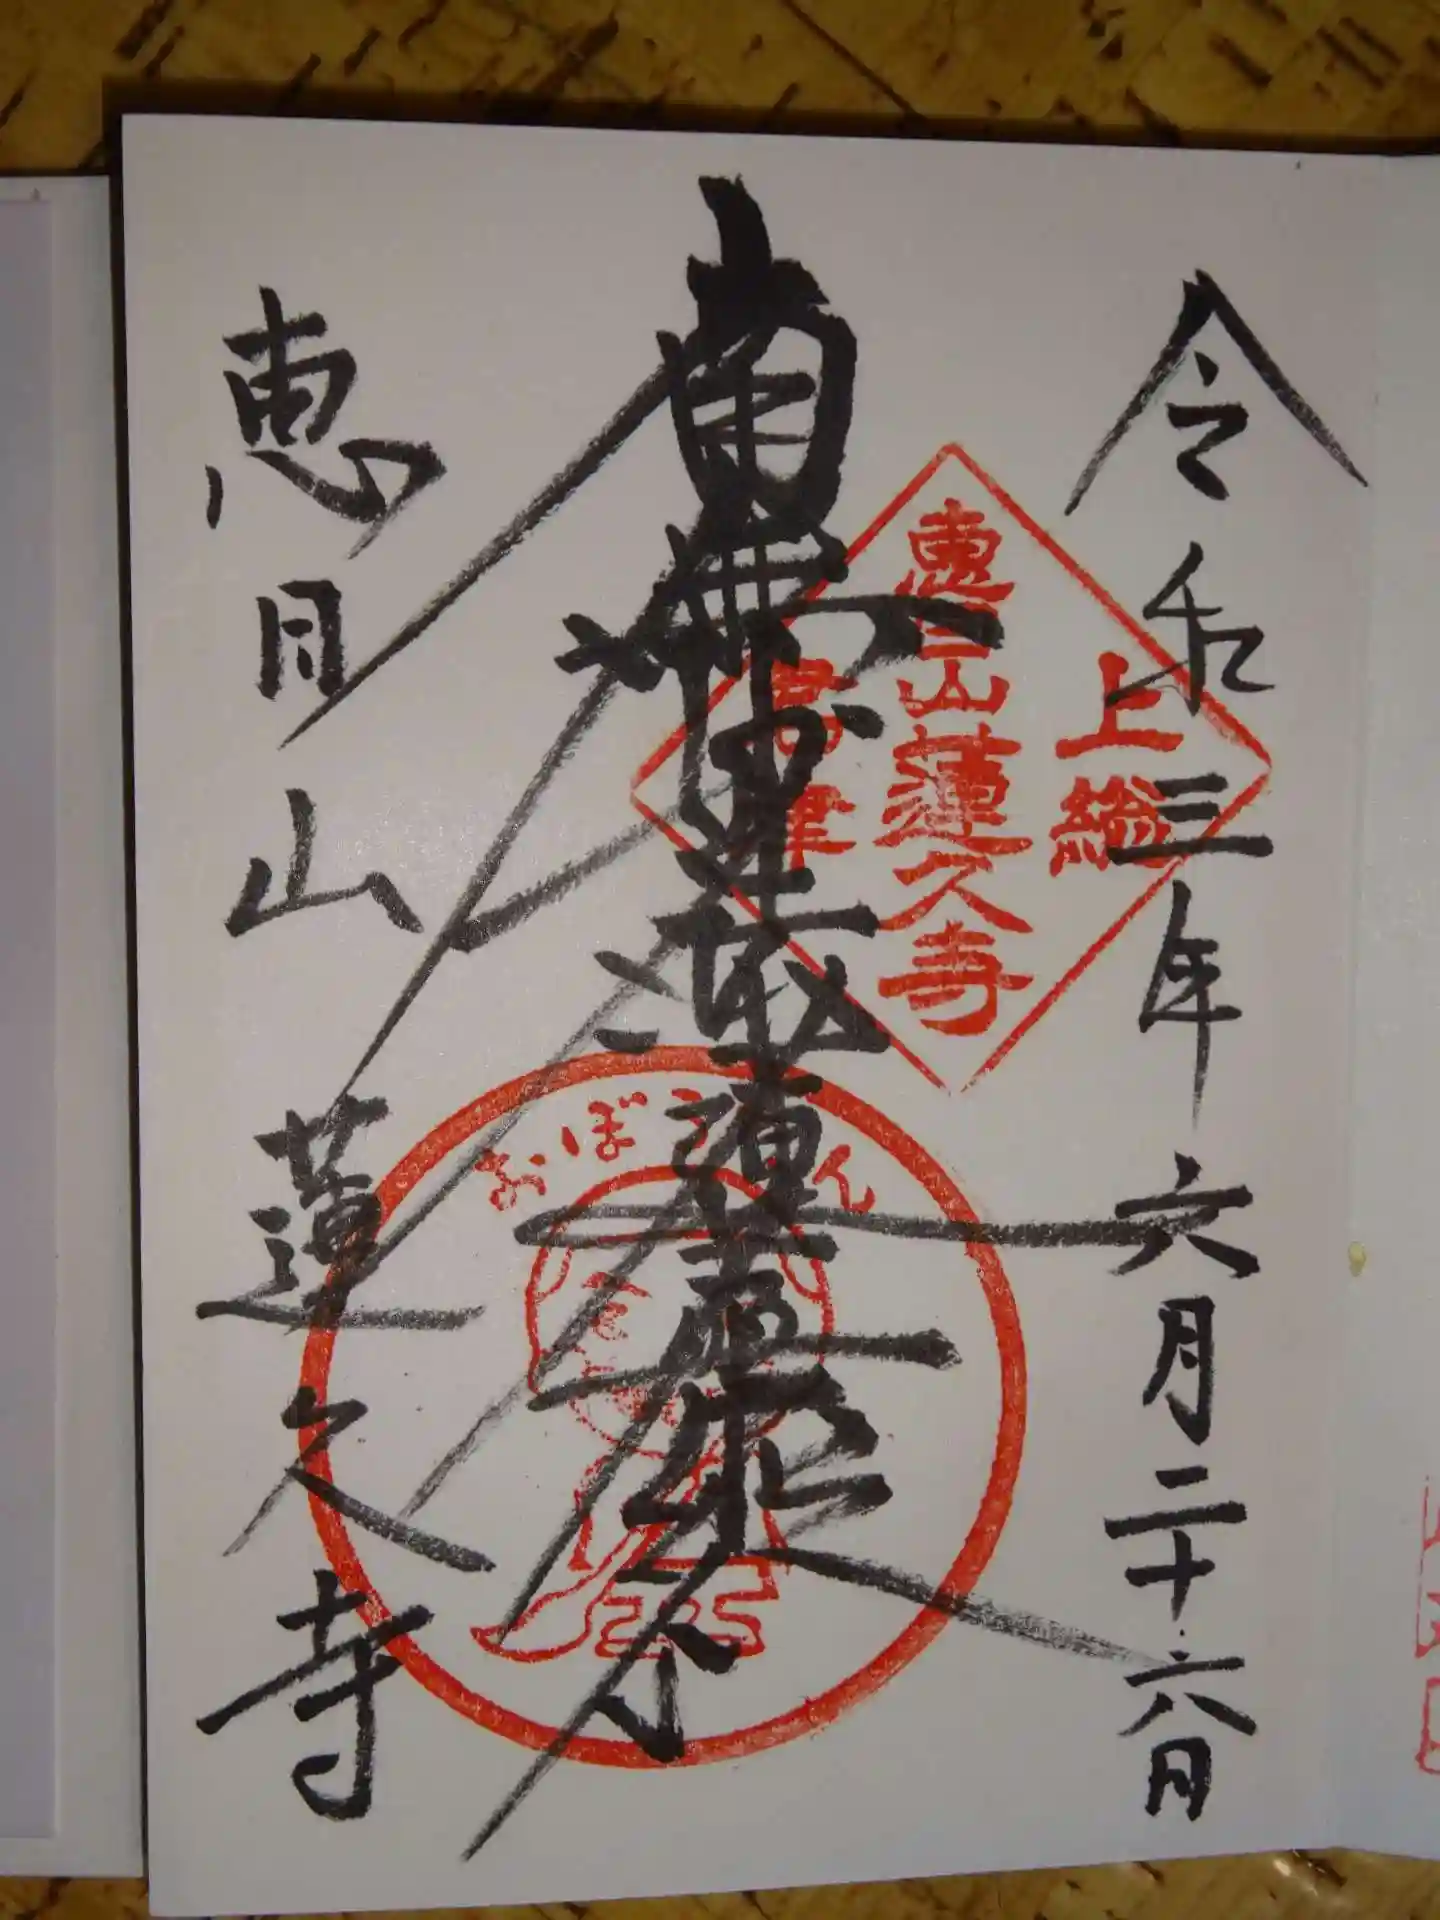 令和三年六月二十六日
上総
恵日山蓮久寺
君津
南無妙法蓮華経
おぼうさん
恵日山蓮久寺